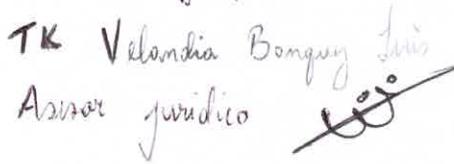 TK Velandia Bonguy Luis
Asesor jurídico